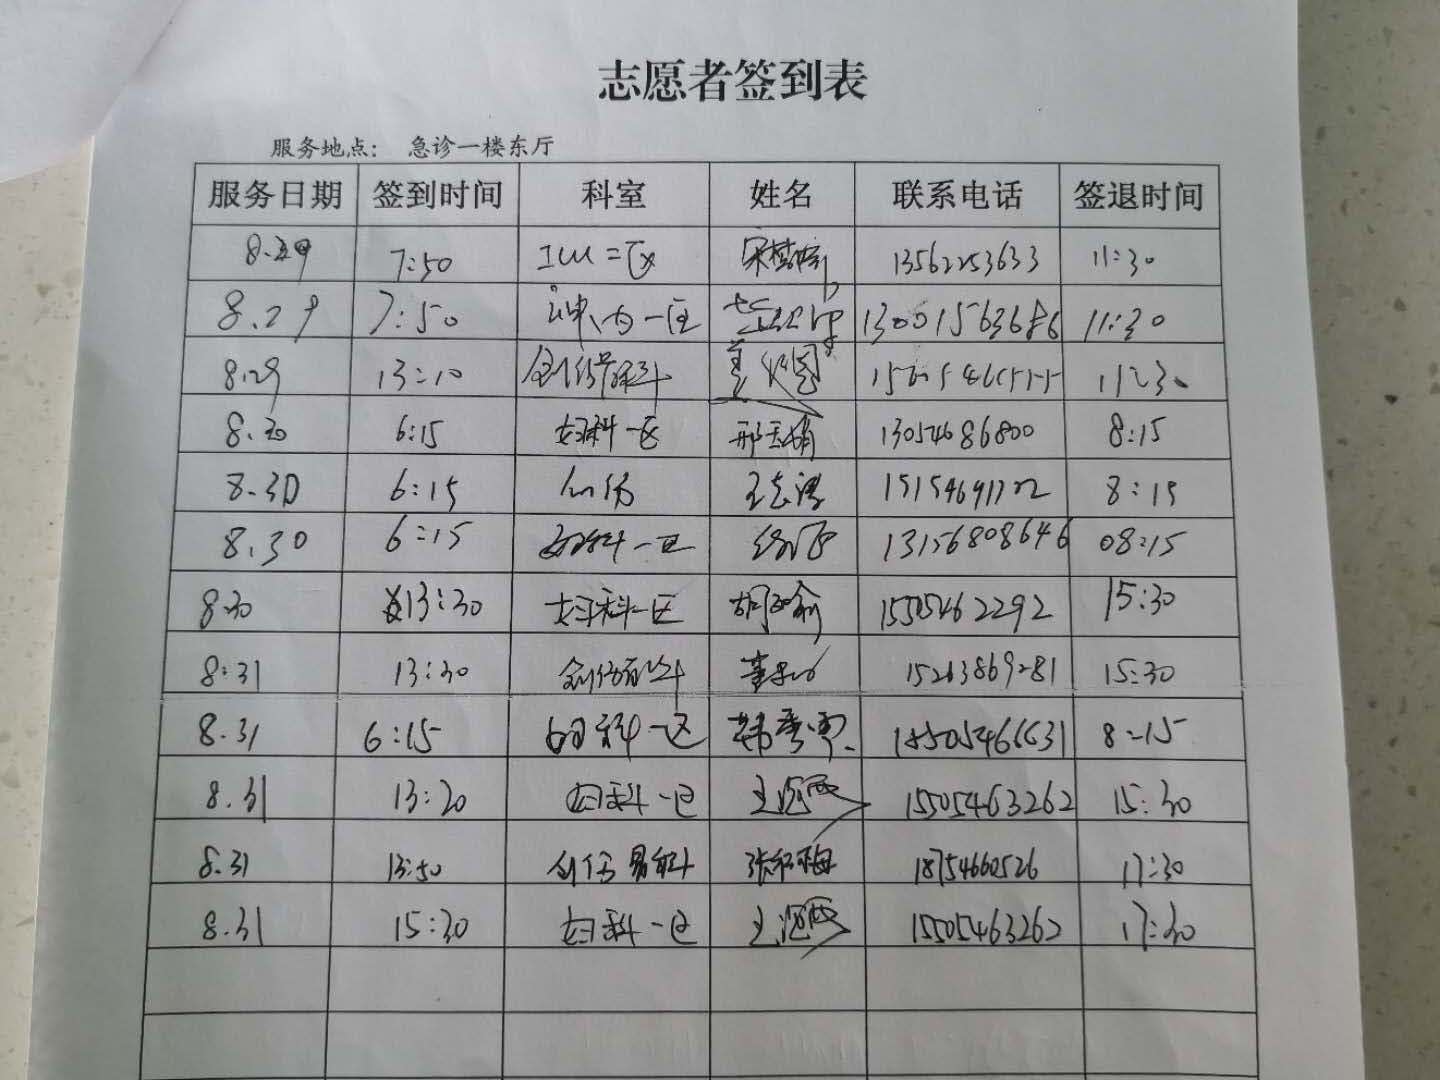 志愿者签到表
服务地点： 急诊一楼东厅
服务日期 签到时间 科室 姓名 联系电话 签退时间
8.29 7:50 ICU二区 13562253633 11:30
8.29 7:50 神内一区 13001563686 11:30
8.29 13:10 创伤骨科 姜 11:30
8.30 6:15 妇科一区 邢 13054686800 8:15
8.30 6:15 创伤 王志涛 8:15
8.30 6:15 妇科一区 13156808646 08:15
8.30 13:30 妇科一区 胡 15505462292 15:30
8:31 13:30 创伤骨科 董 15263869281 15:30
8.31 6:15 妇科一区 韩秀雲 18505466631 8:15
8.31 13:20 妇科一区 王 15505463262 15:30
8.31 13:50 创伤骨科 张红梅 18754660526 17:30
8.31 15:30 妇科一区 王 15505463262 17:30